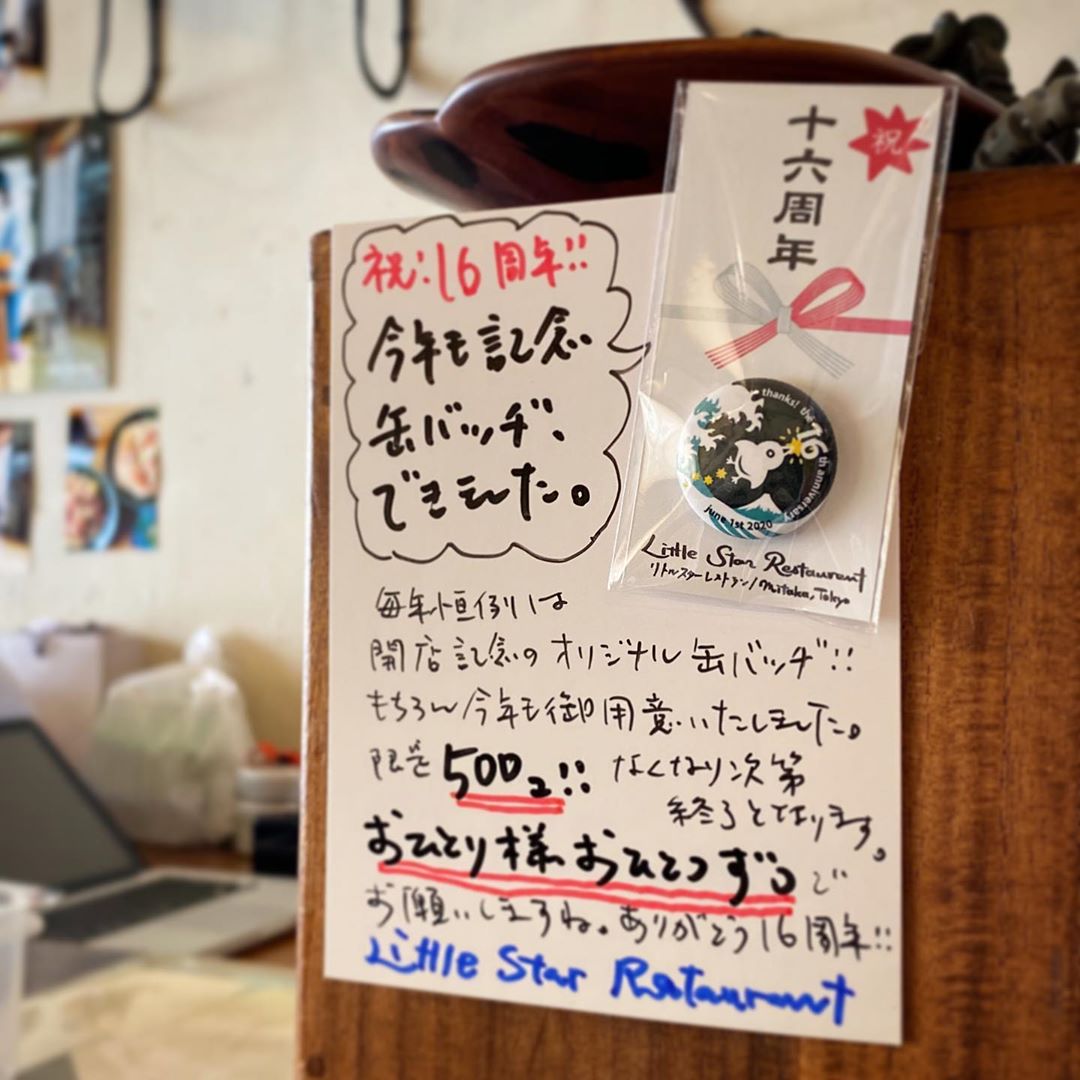 祝!16周年!!
今年も記念
缶バッヂ、
できました。
祝
十六周年
thanks! the 16th anniversary
june 1st 2020
Little Star Restaurant
リトルスターレストラン/Mitaka, Tokyo
毎年恒例は
開店記念のオリジナル缶バッヂ!!
もちろん今年も御用意いたしました。
限定500コ!! なくなり次第
終了となります。
おひとり様おひとつずつで
お願いしますね。ありがとう16周年!!
Little Star Restaurant